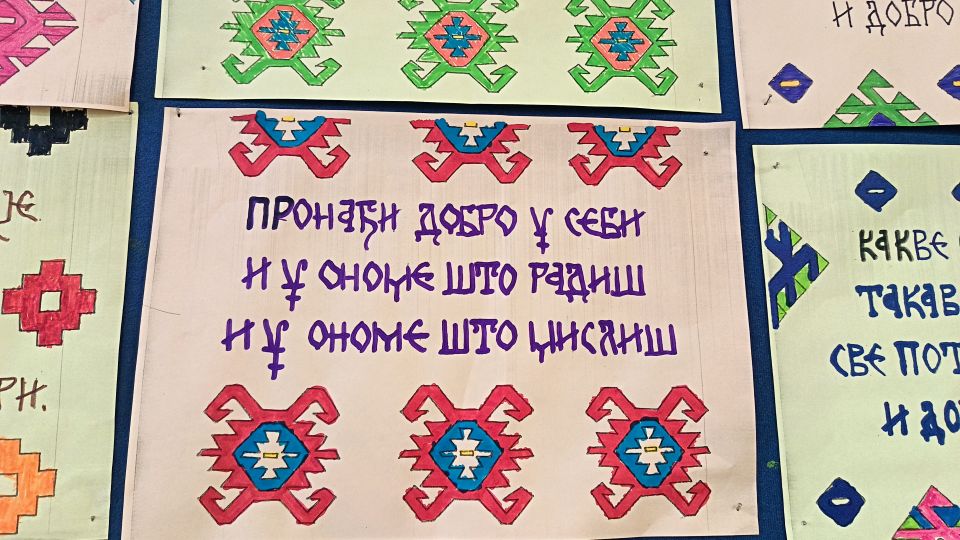 И ДОБРО
ЈЕ
РИ.
ПРОНАЂИ ДОБРО У СЕБИ
И У ОНОМЕ ШТО РАДИШ
И У ОНОМЕ ШТО МИСЛИШ
КАКВЕ
ТАКАВ
СВЕ ПОТ
И ДО